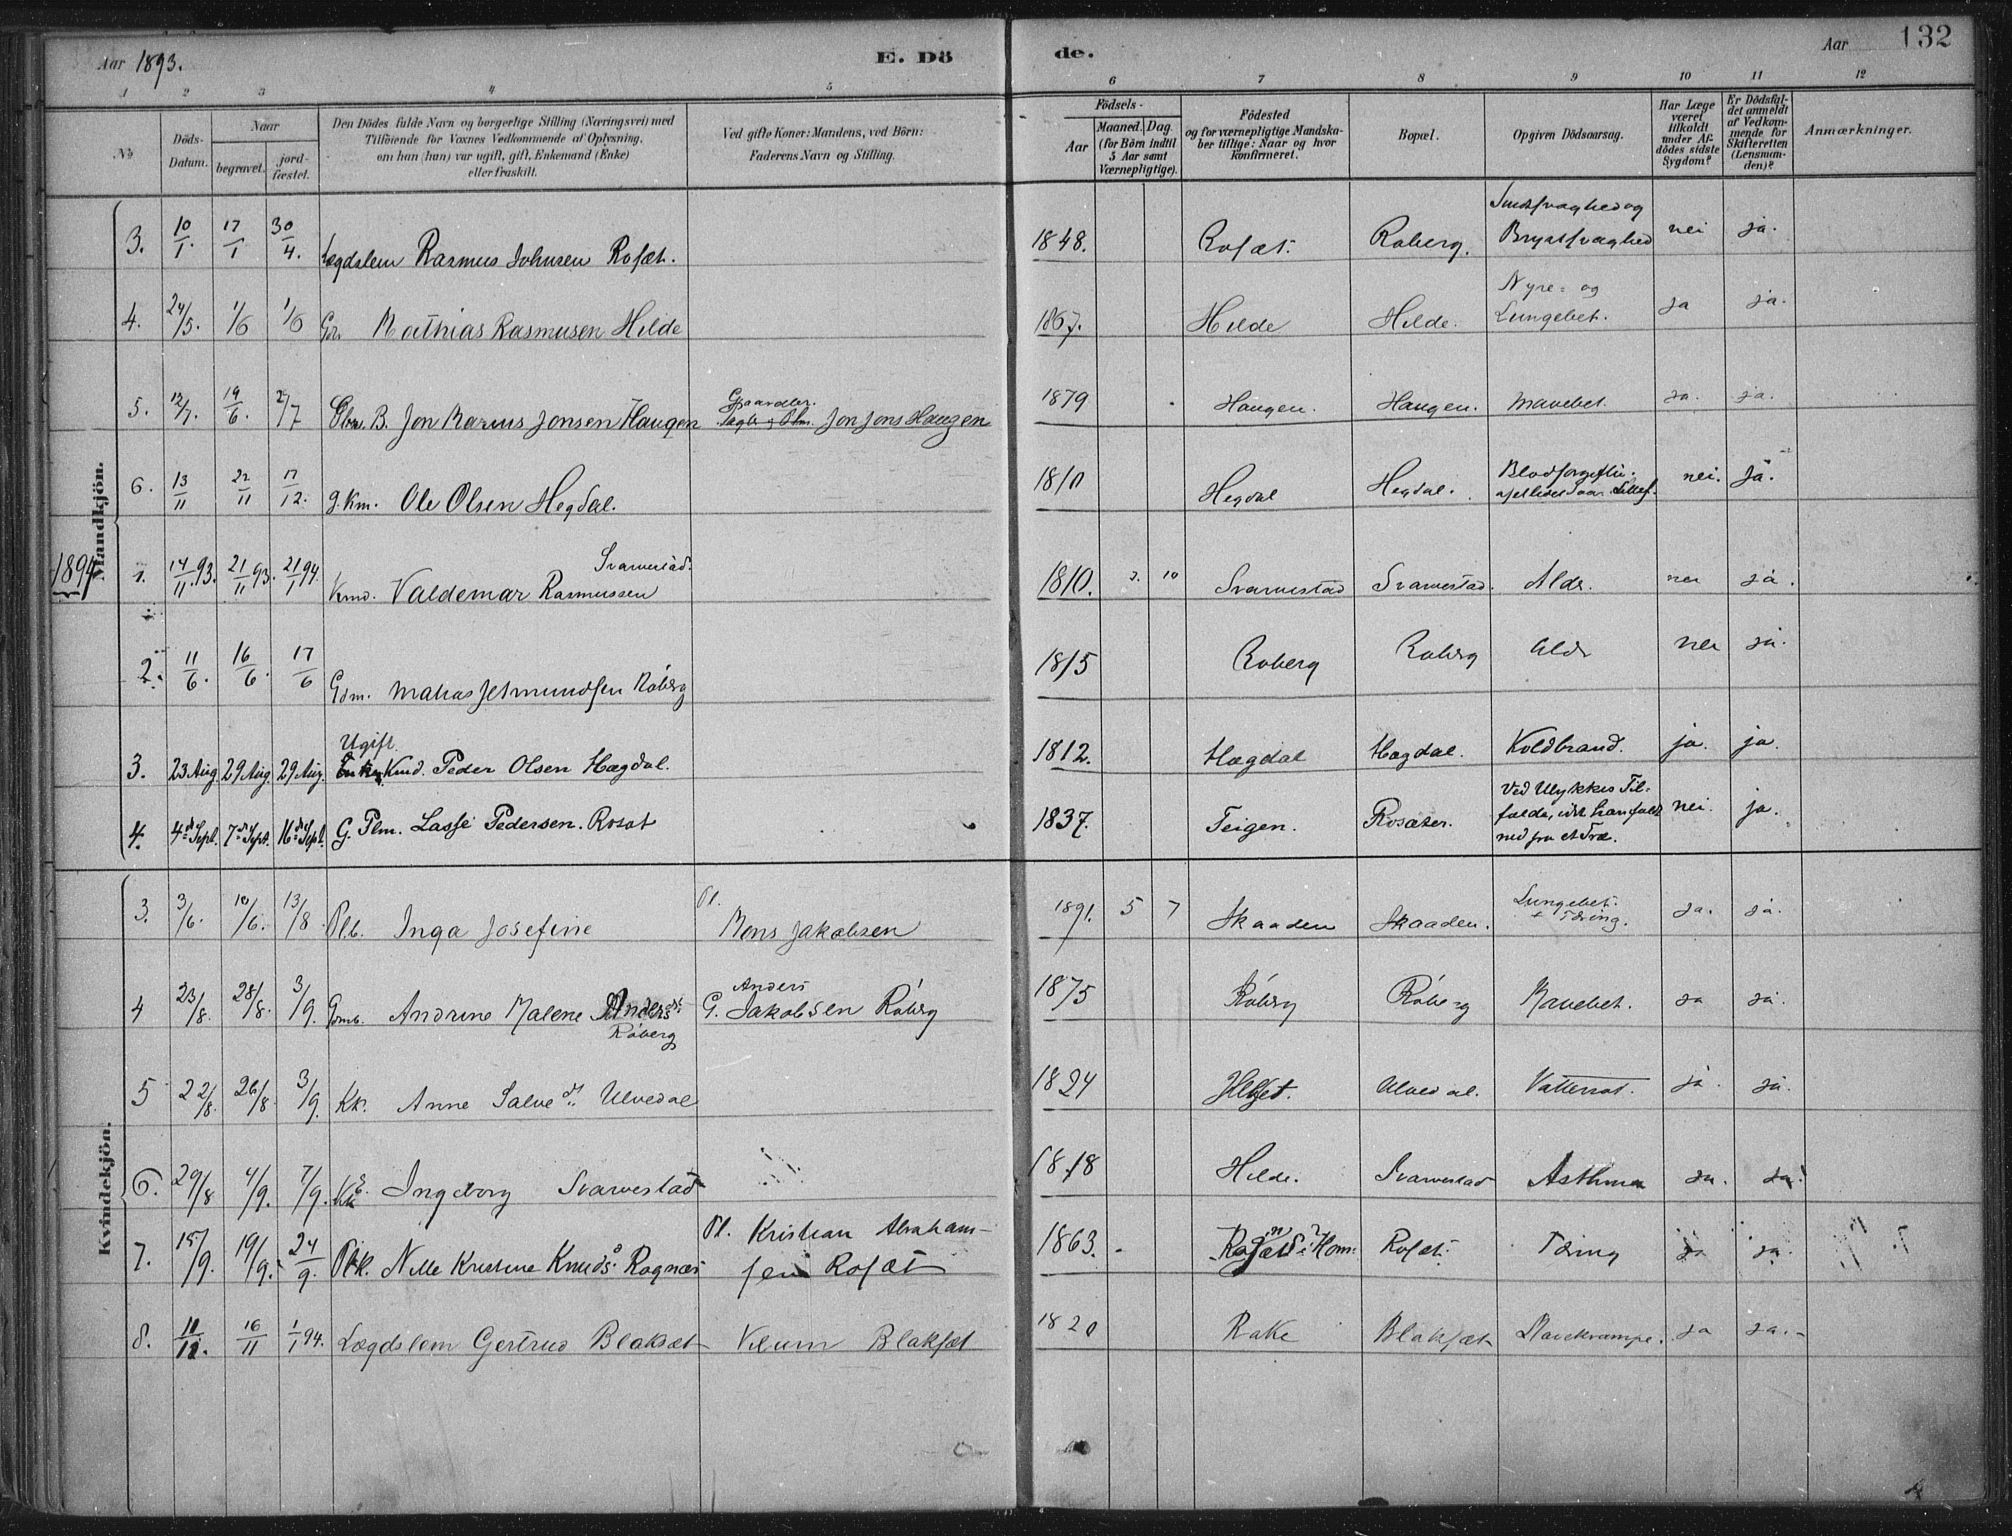 Aar 1893. E. Dö de. Aar 132
1 2 3 4 5 6 7 8 9 10 11 12
No
Döds-
Datum.
Naar
begravet.
jord-
fæstet.
Den Dödes fulde Navn og borgerlige Stilling (Næringsvei) med
Tilföiende for Voxnes Vedkommende af Oplysning,
om han (hun) var ugift, gift, Enkemand (Enke)
eller fraskilt.
Ved gifte Koner: Mandens, ved Börn:
Faderens Navn og Stilling.
Födsels-
Aar
Maaned. Dag.
(for Börn indtil
5 Aar samt
Værnepligtige).
Födested
og for værnepligtige Mandska-
ber tillige: Naar og hvor
konfirmeret.
Bopæl.
Opgiven Dödsaarsag.
Har Læge
været
tilkaldt
under Af-
dödes sidste
Sygdom?
Er Dödsfal-
det anmeldt
af Vedkom-
mende for
Skifteretten
(Lensman-
den)?
Anmærkninger.
Mandkjön.
3. 10/1. 17/1 30/4. Lægdslem Rasmus Johnsen Rosæt. 1848. Rosæt. Raberg. Sindssvaghed og Brystsvaghed nei ja.
4. 24/5. 1/6 1/6 Gdr Mathias Rasmusen Hilde 1867. Hilde Hilde. Nyre- og Lungebet. ja ja.
5. 12/7. 19/6. 2/7 B. Jon Marius Jonsen Haugen Gaardbr. Jon Jons Haugen 1879 Haugen. Haugen. Mavebet. ja. ja.
6. 13/11 22/11 17/12. g. Km. Ole Olsen Hegdal. 1810 Hegdal Hegdal. Blodforgiftn. af et lidet Saar nei. ja.
1894
1. 14/11.93. 21/11 93. 21/1 94. Kmd. Valdemar Rasmussen Svarvestad. 1810. 2. 10 Svarvestad Svarvestad. Aldr. nei ja.
2. 11/6. 16/6. 17/6 Gdm. Matias Jetmundsen Röberg 1815 Roberg Roberg Aldr nei ja.
3. 23 Aug 29 Aug. 29 Aug. Ugift Kmd. Peder Olsen Hægdal. 1812. Hægdal Hægdal. Koldbrand. ja. ja.
4. 4de Sept. 7de Sept. 16de Sept. G. Plm. Lasse Pedersen. Rosæt 1837. Teigen. Rosæter. Ved Ulykkes Til-
falde, idet han faldt
ned fra et Træ. nei. ja.
Kvindekjön.
3. 3/6. 10/6. 13/8 Plb. Inga Josefine Pl. Mons Jakobsen 1891. 5 7 Skaaden Skaaden. Lungebet. + Tæring. ja. ja.
4 23/8. 28/8. 3/9. Gmb. Andrine Malene Andersdt. Röberg G. Anders Jakobsen Röberg 1875 Röberg Röberg Mavebet. ja ja.
5 22/8. 26/8. 3/9. Kk. Anne Salvedt. Ulvedal 1824 Helset. Ulvedal. Vattersot. ja. ja.
6. 29/8 4/9. 7/9. Kk E. Ingeborg Svarvestad 1818 Hilde. Svarvestad Asthma ja. ja.
7. 15/9. 19/9. 24/9. Plk. Nille Kristine Knuds. Ragnæs Pl. Kristian Abraham-
sen Rosæt 1863. Rosæt. Tæring ja ja.
8. 10/11. 16/11 1/1 94. Lægdslem Gertrud Blaksæt Blaksæt 1820 Rake Blaksæt Mavekrampe. ja ja.